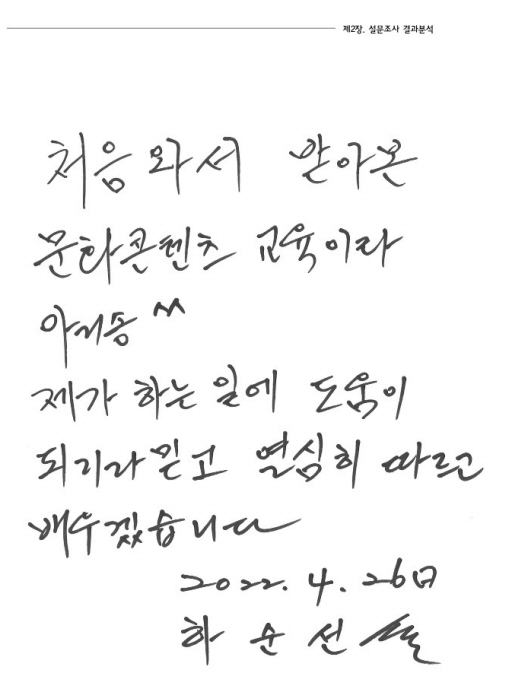 제2장. 설문조사 결과분석
처음 와서 받아온
문화콘텐츠 교육이라
아리송 ^^
제가 하는 일에 도움이
되리라 믿고 열심히 따르고
배우겠습니다
2022. 4. 26日
하 순 선